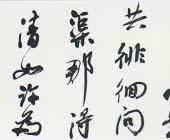 共徘徊問
渠那得
清如許為